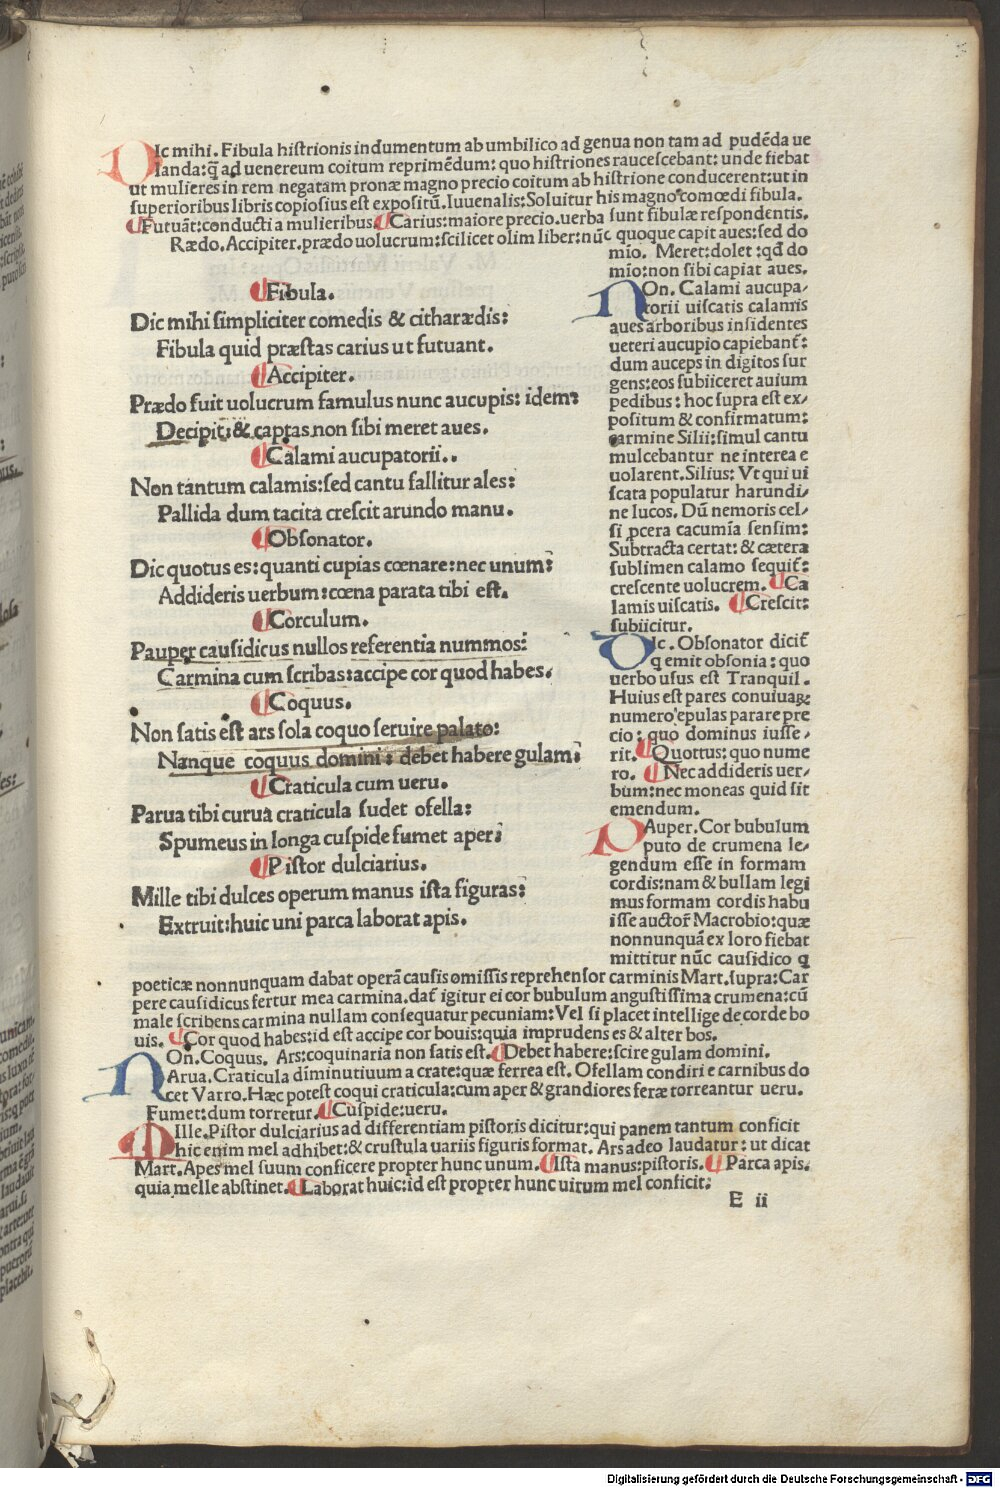 DIc mihi. Fibula histrionis indumentum ab umbilico ad genua non tam ad pudēda ue
landa: q̃ ad uenereum coitum reprimēdum: quo histriones raucescebant: unde fiebat
ut mulieres in rem negatam pronæ magno precio coitum ab histrione conducerent: ut in
superioribus libris copiosius est expositũ. Iuuenalis: Soluitur his magno comœdi fibula.
¶Futuãt: conducti a mulieribus. ¶Carius: maiore precio. uerba sunt fibulæ respondentis.
Rædo. Accipiter. prædo uolucrum: scilicet olim liber: nũc quoque capit aues: sed do
mio. Meret: dolet: qd̃ do
mio: non sibi capiat aues.
¶Fibula.
Dic mihi simpliciter comedis & citharædis:
Fibula quid præstas carius ut futuant.
¶Accipiter.
Prædo fuit uolucrum famulus nunc aucupis: idem:
Decipit: & captas non sibi meret aues.
¶Calami aucupatorii..
Non tantum calamis: sed cantu fallitur ales:
Pallida dum tacita crescit arundo manu.
¶Obsonator.
Dic quotus es: quanti cupias cœnare: nec unum:
Addideris uerbum: cœna parata tibi est.
¶Corculum.
Pauper causidicus nullos referentia nummos:
Carmina cum scribas: accipe cor quod habes.
¶Coquus.
Non satis est ars sola coquo seruire palato:
Nanque coquus domini: debet habere gulam:
¶Craticula cum ueru.
Parua tibi curua craticula sudet ofella:
Spumeus in longa cuspide fumet aper:
¶Pistor dulciarius.
Mille tibi dulces operum manus ista figuras:
Extruit: huic uni parca laborat apis.
NOn. Calami aucupa-
torii uiscatis calamis
aues arboribus insidentes
ueteri aucupio capiebant̃:
dum auceps in digitos sur
gens: eos subiiceret auium
pedibus: hoc supra est ex-
positum & confirmatum:
carmine Silii: simul cantu
mulcebantur ne interea e
uolarent. Silius: Vt qui ui
scata populatur harundi-
ne lucos. Dũ nemoris cel-
si ꝓcera cacumĩa sensim:
Subtracta certat: & cætera
sublimen calamo sequit̃:
crescente uolucrem. ¶Ca
lamis uiscatis. ¶Crescit:
subiicitur.
DIc. Obsonator dicit̃
q emit obsonia: quo
uerbo usus est Tranquil.
Huius est pares conuiuaꝝ
numero epulas parare pre
cio: quo dominus iusse-
rit. ¶Quottus: quo nume
ro. ¶Nec addideris uer-
bum: nec moneas quid sit
emendum.
PAuper. Cor bubulum
puto de crumena le-
gendum esse in formam
cordis: nam & bullam legi
mus formam cordis habu
isse auctor̃ Macrobio: quæ
nonnunquã ex loro fiebat
mittitur nũc causidico q
poeticæ nonnunquam dabat operã causis omissis reprehensor carminis Mart. supra: Car
pere causidicus fertur mea carmina. dat̃ igitur ei cor bubulum angustissima crumena: cũ
male scribens carmina nullam consequatur pecuniam: Vel si placet intellige de corde bo
uis. ¶Cor quod habes: id est accipe cor bouis: quia imprudens es & alter bos.
NOn. Coquus. Ars: coquinaria non satis est. ¶Debet habere: scire gulam domini.
Arua. Craticula diminutiuum a crate: quæ ferrea est. Ofellam condiri e carnibus do
cet Varro. Hæc potest coqui craticula: cum aper & grandiores feræ torreantur ueru.
Fumet: dum torretur. ¶Cuspide: ueru.
MIlle. Pistor dulciarius ad differentiam pistoris dicitur: qui panem tantum conficit
hic enim mel adhibet: & crustula uariis figuris format. Ars adeo laudatur: ut dicat
Mart. Apes mel suum conficere propter hunc unum. ¶Ista manus: pistoris. ¶Parca apis.
quia melle abstinet. ¶Laborat huic: id est propter hunc uirum mel conficit:
E ii
Digitalisierung gefördert durch die Deutsche Forschungsgemeinschaft - DFG